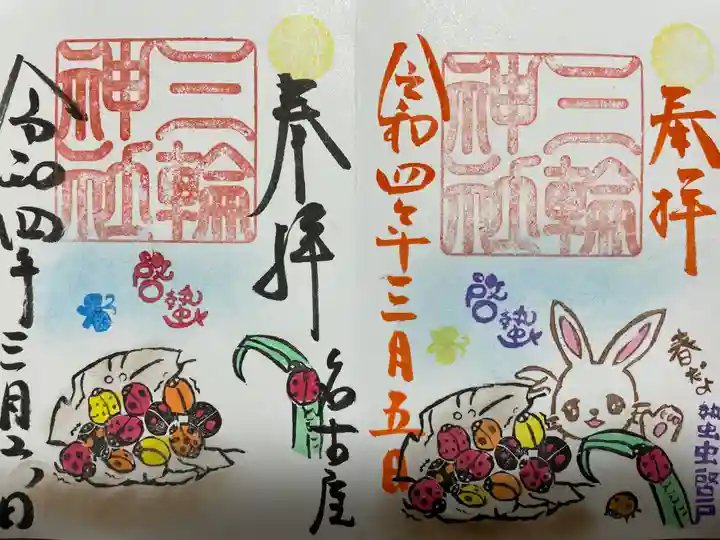 奉拝
三輪
神社
令和四年三月五日
啓蟄
春だよ
蟄虫啓戸
奉拝
名古屋
三輪
神社
啓蟄
令和四年三月六日